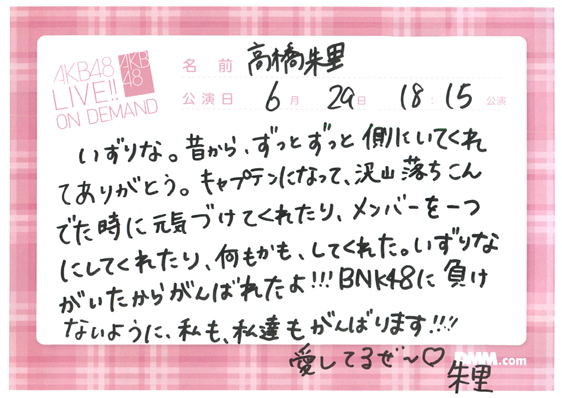 AKB48
LIVE!!
ON DEMAND
AKB
48
名前 高橋朱里
公演日 6月 29日 18:15 公演
いずりな。昔から、ずっとずっと側にいてくれ
てありがとう。キャプテンになって、沢山落ちこん
でた時に元気づけてくれたり、メンバーを一つ
にしてくれたり、何もかも、してくれた。いずりな
がいたからがんばれたよ!!! BNK48に負け
ないように、私も、私達もがんばります!!!!
愛してるぜ〜♡
DMM.com
朱里